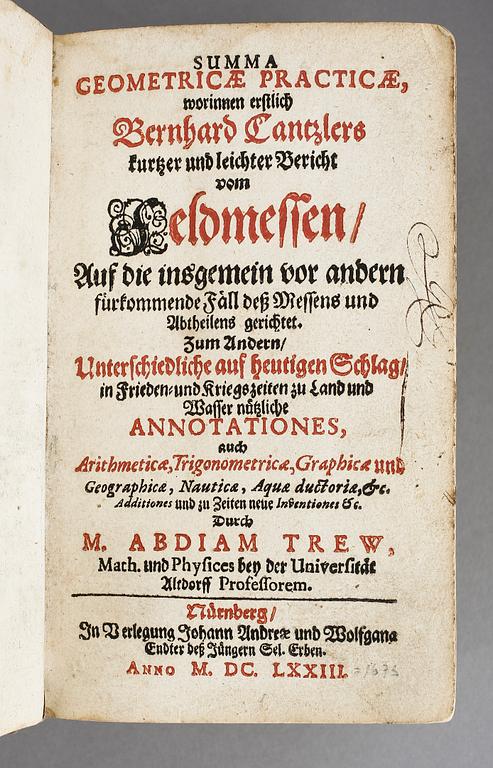 SUMMA
GEOMETRICÆ PRACTICÆ,
worinnen erstlich
Bernhard Cantzlers
kurtzer und leichter Bericht
vom
Feldmessen/
Auf die insgemein vor andern
fürkommende Fäll deß Messens und
Abtheilens gerichtet.
Zum Andern/
Unterschiedliche auf heutigen Schlag/
in Frieden- und Kriegszeiten zu Land und
Wasser nützliche
ANNOTATIONES,
auch
Arithmeticæ, Trigonometricæ, Graphicæ und
Geographicæ, Nauticæ, Aquæ ductoriæ, &c.
Additiones und zu Zeiten neue Inventiones &c.
Durch
M. ABDIAM TREW,
Math. und Physices bey der Universität
Altdorff Professorem.
Nürnberg/
In Verlegung Johann Andreæ und Wolfgang
Endter deß Jüngern Sel. Erben.
ANNO M. DC. LXXIII.